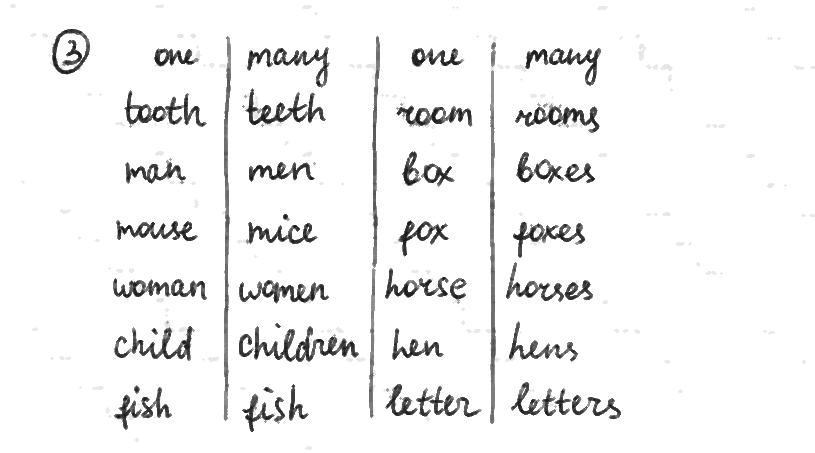 3 one many one many
tooth teeth room rooms
man men box boxes
mouse mice fox foxes
woman women horse horses
child children hen hens
fish fish letter letters